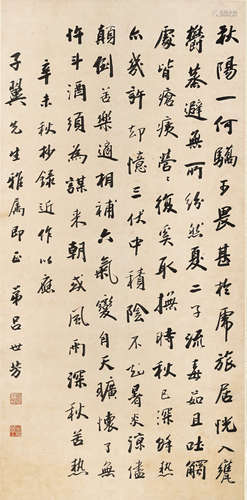 秋陽一何驕予畏甚於虎旅居恍入甕
鬱蒸避無所紛然夏二子流毒茹且吐觸
處皆瘡痍營營復奚取撫時秋已深殘熱
幾許却憶三伏中積陰不知暑炎涼儘
顛倒苦樂適相補六氣變自天曠懷了無
忤斗酒須為謀來朝或風雨深秋苦熱
辛未秋杪錄近作以應
子翼先生雅屬即正 弟呂世芳